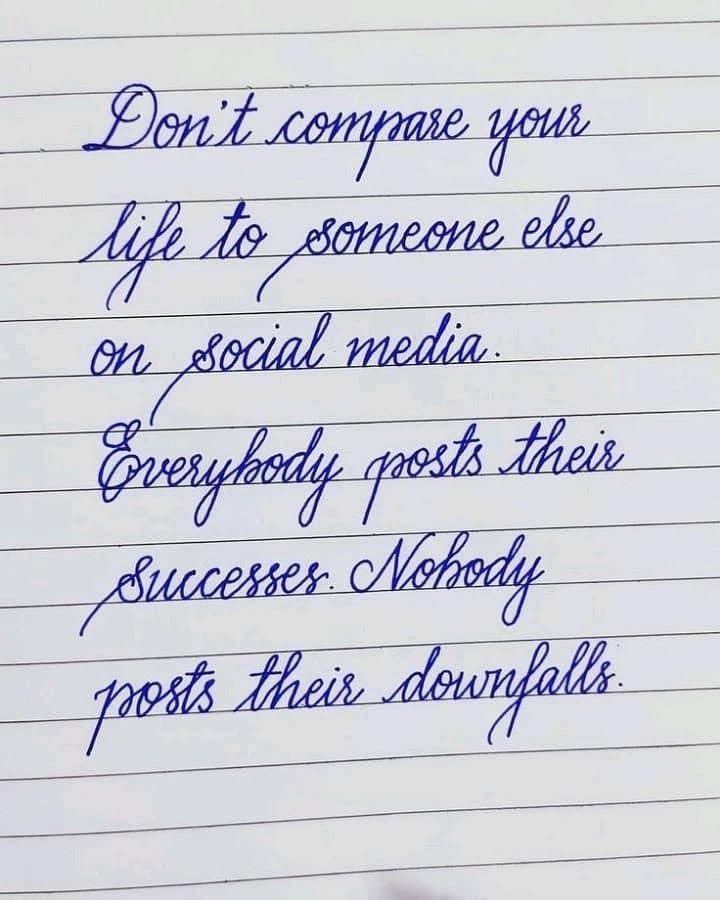 Don't compare your
life to someone else
on social media.
Everybody posts their
successes. Nobody
posts their downfalls.